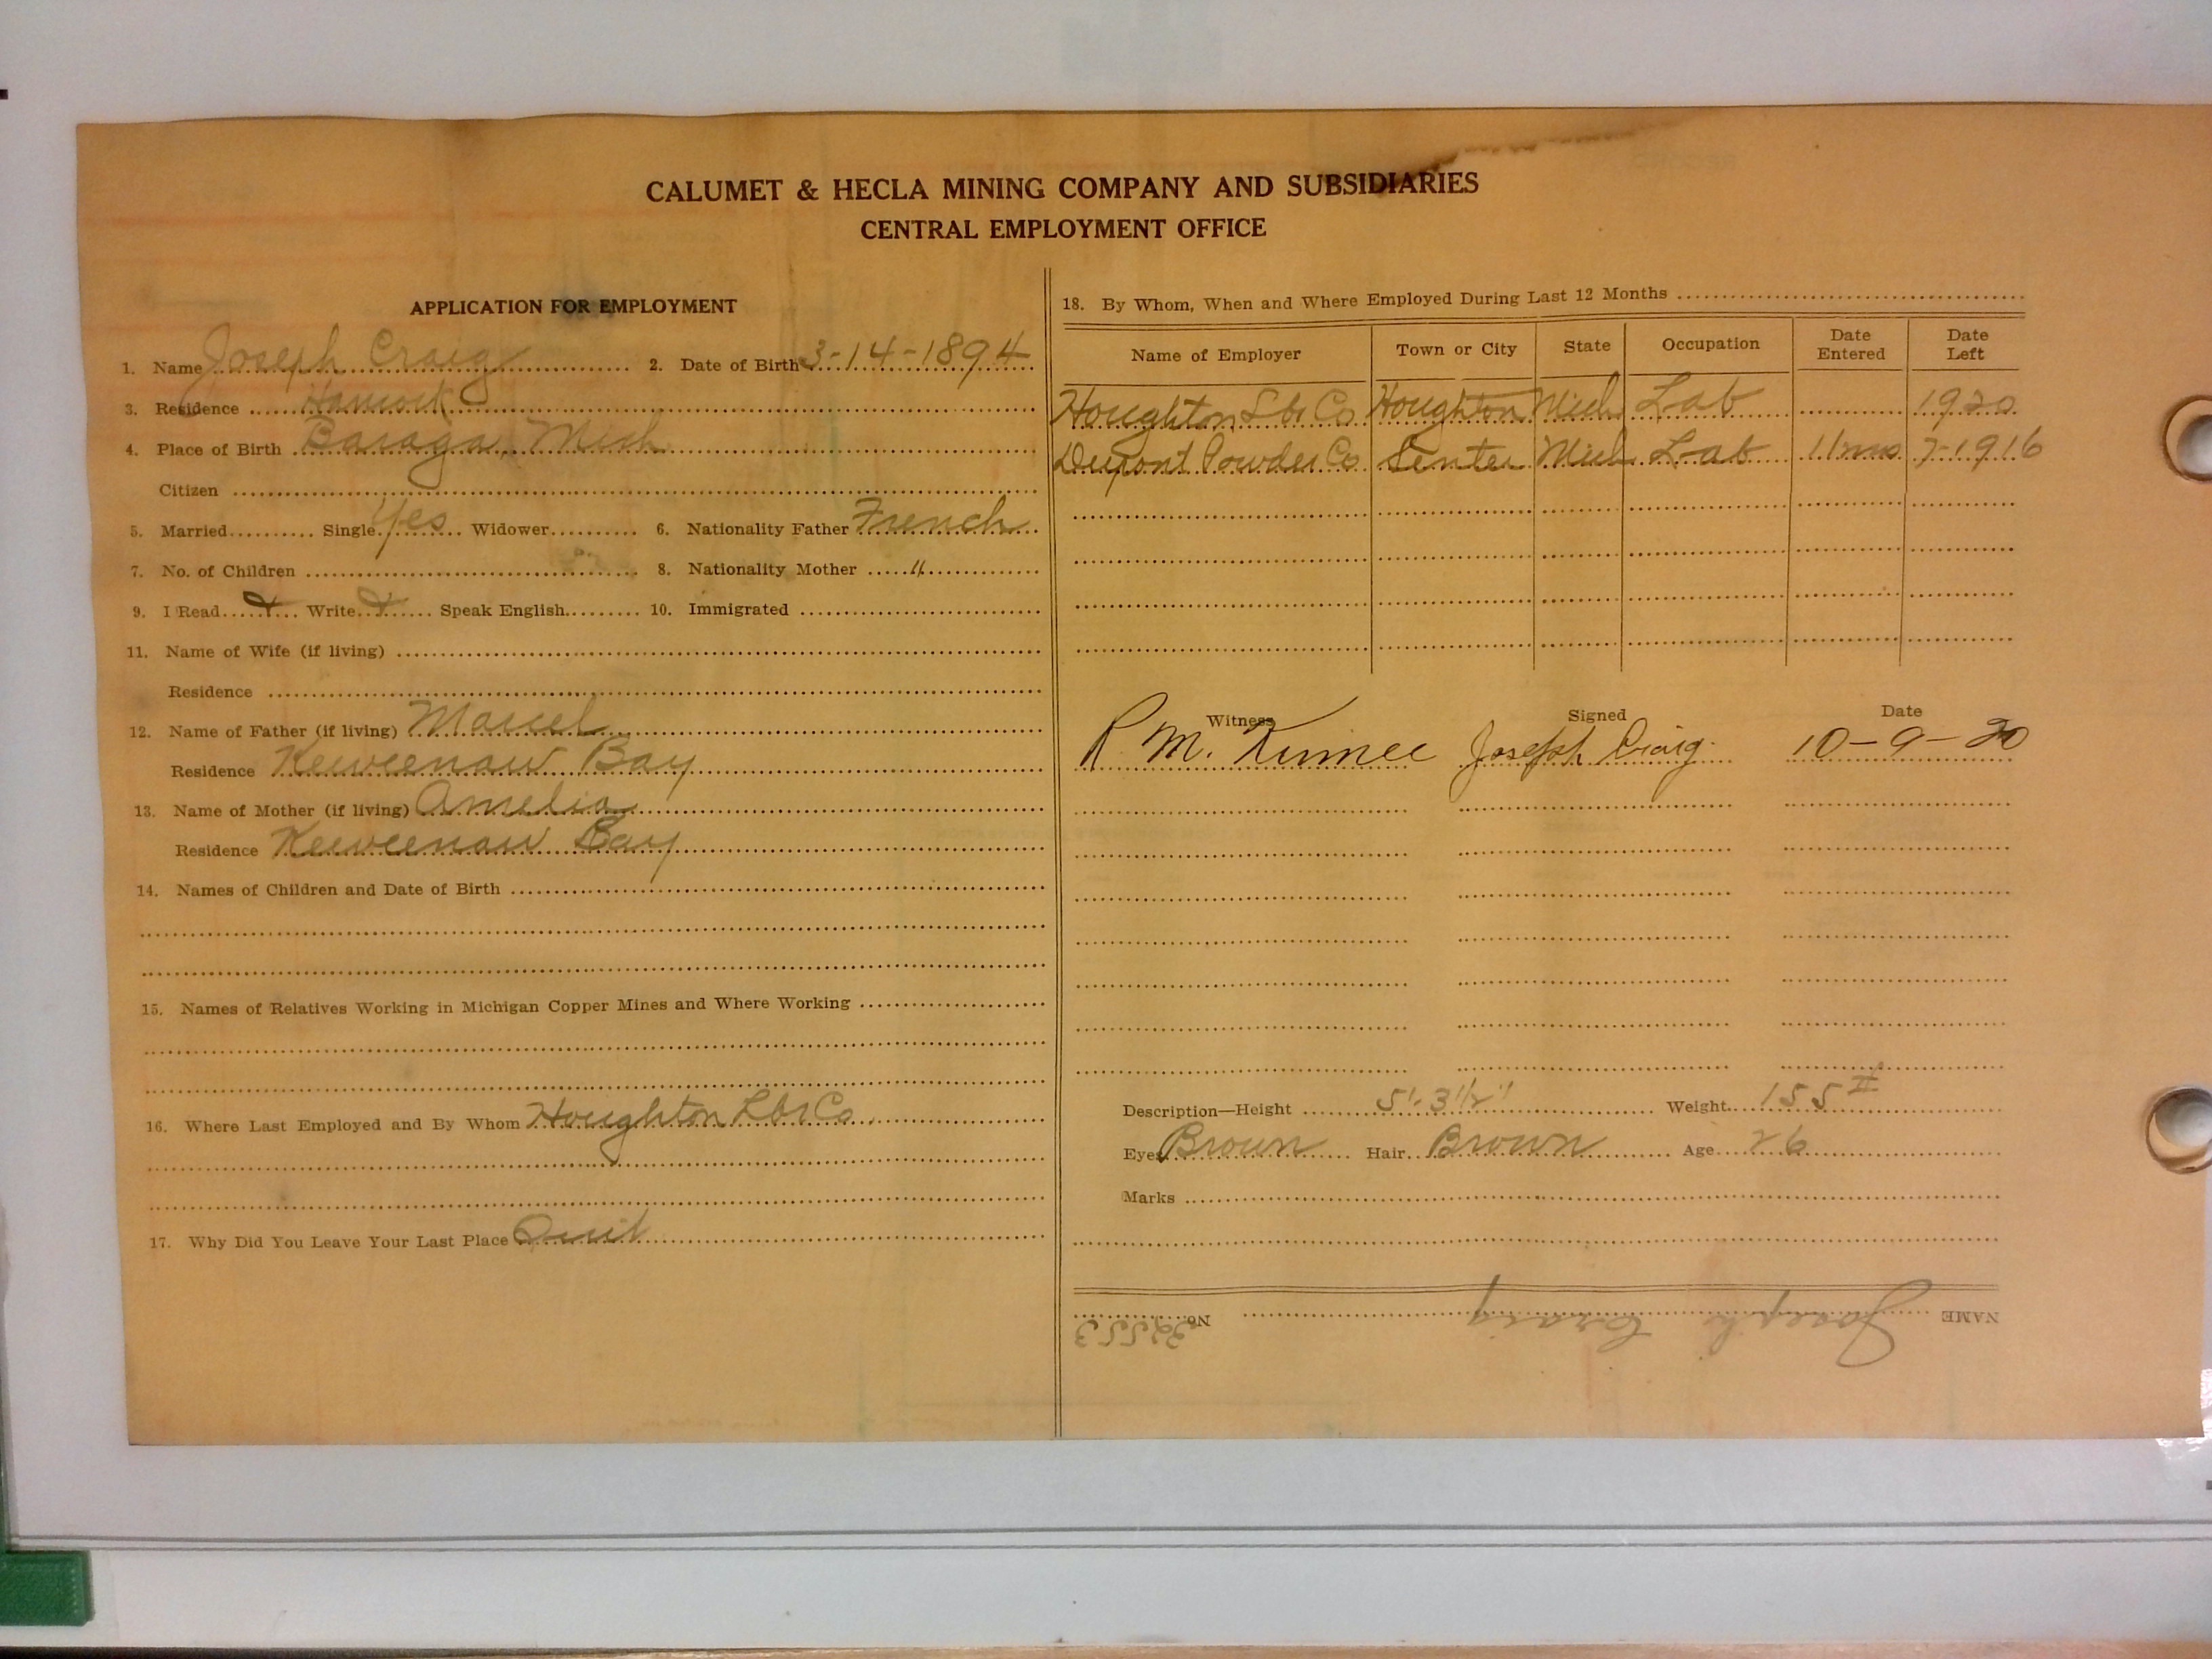 CALUMET & HECLA MINING COMPANY AND SUBSIDIARIES
CENTRAL EMPLOYMENT OFFICE
APPLICATION FOR EMPLOYMENT
1. Name Joseph Craig 2. Date of Birth 3-14-1894
3. Residence Hancock
4. Place of Birth Baraga, Mich
Citizen
5. Married Single Yes Widower 6. Nationality Father French
7. No. of Children 8. Nationality Mother "
9. I Read X Write X Speak English 10. Immigrated
11. Name of Wife (if living)
Residence
12. Name of Father (if living) Marcel
Residence Keweenaw Bay
13. Name of Mother (if living) Amelia
Residence Keweenaw Bay
14. Names of Children and Date of Birth
15. Names of Relatives Working in Michigan Copper Mines and Where Working
16. Where Last Employed and By Whom Houghton Lbr Co
17. Why Did You Leave Your Last Place Quit
18. By Whom, When and Where Employed During Last 12 Months
Name of Employer Town or City State Occupation Date Entered Date Left
Houghton Lbr Co Houghton Mich Lab 1920
Dupont Powder Co Senter Mich Lab 11 mos 7-1916
Witness Signed Date
R. M. Joseph Craig 10-9-20
Description—Height 5'-3 1/2" Weight 155#
Eyes Brown Hair Brown Age 26
Marks
NAME Joseph Craig No. 32553